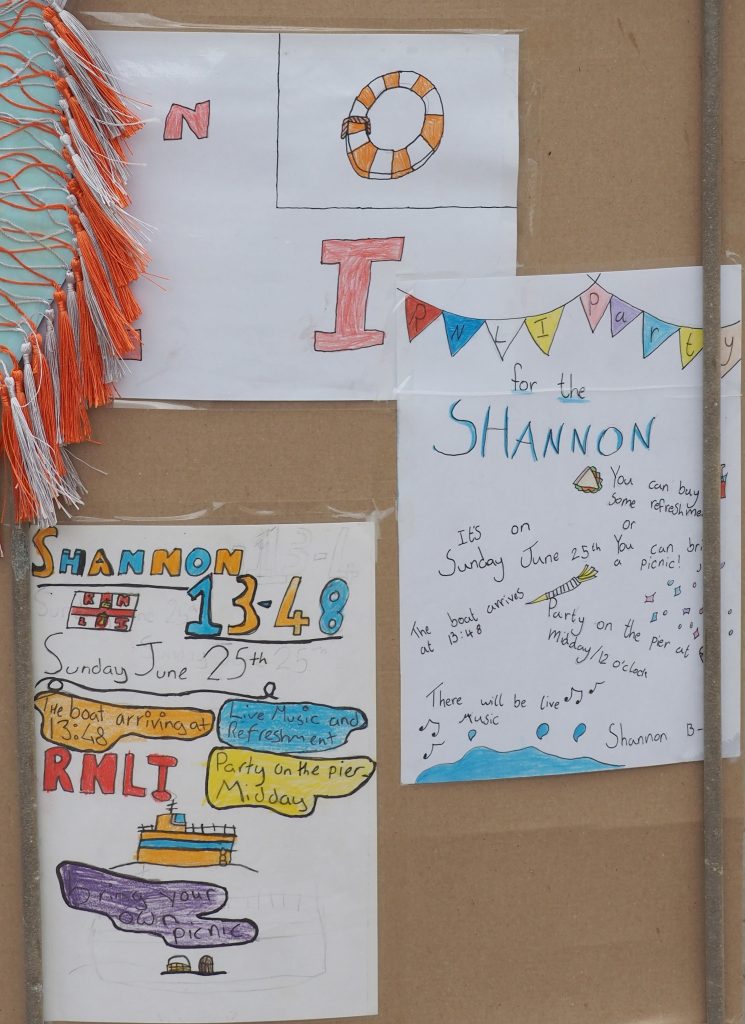 N
I
RNLI Party
for the
SHANNON
You can buy
some
or
It's on
Sunday June 25th
You can
a picnic!
The boat arrives
at 13:48
Party on the pier at
midday/12 o'clock
There will be live
Music
Shannon 13-
SHANNON
13-48
RN
LI
Sunday June 25th
The boat arriving at
13:48
Live Music and
Refreshment
RNLI
Party on the pier-
Midday
bring your
own
picnic